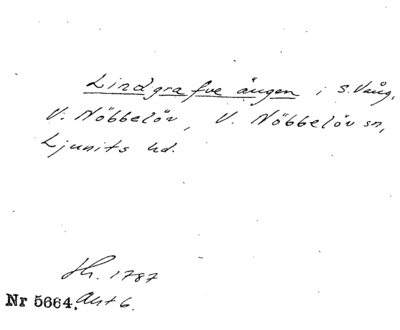 Lindgrafve ängen i S. Vång,
V. Nöbbelöv, V. Nöbbelöv sn,
Ljunits hd.
Sk. 1787
Nr 5664. Akt 6.